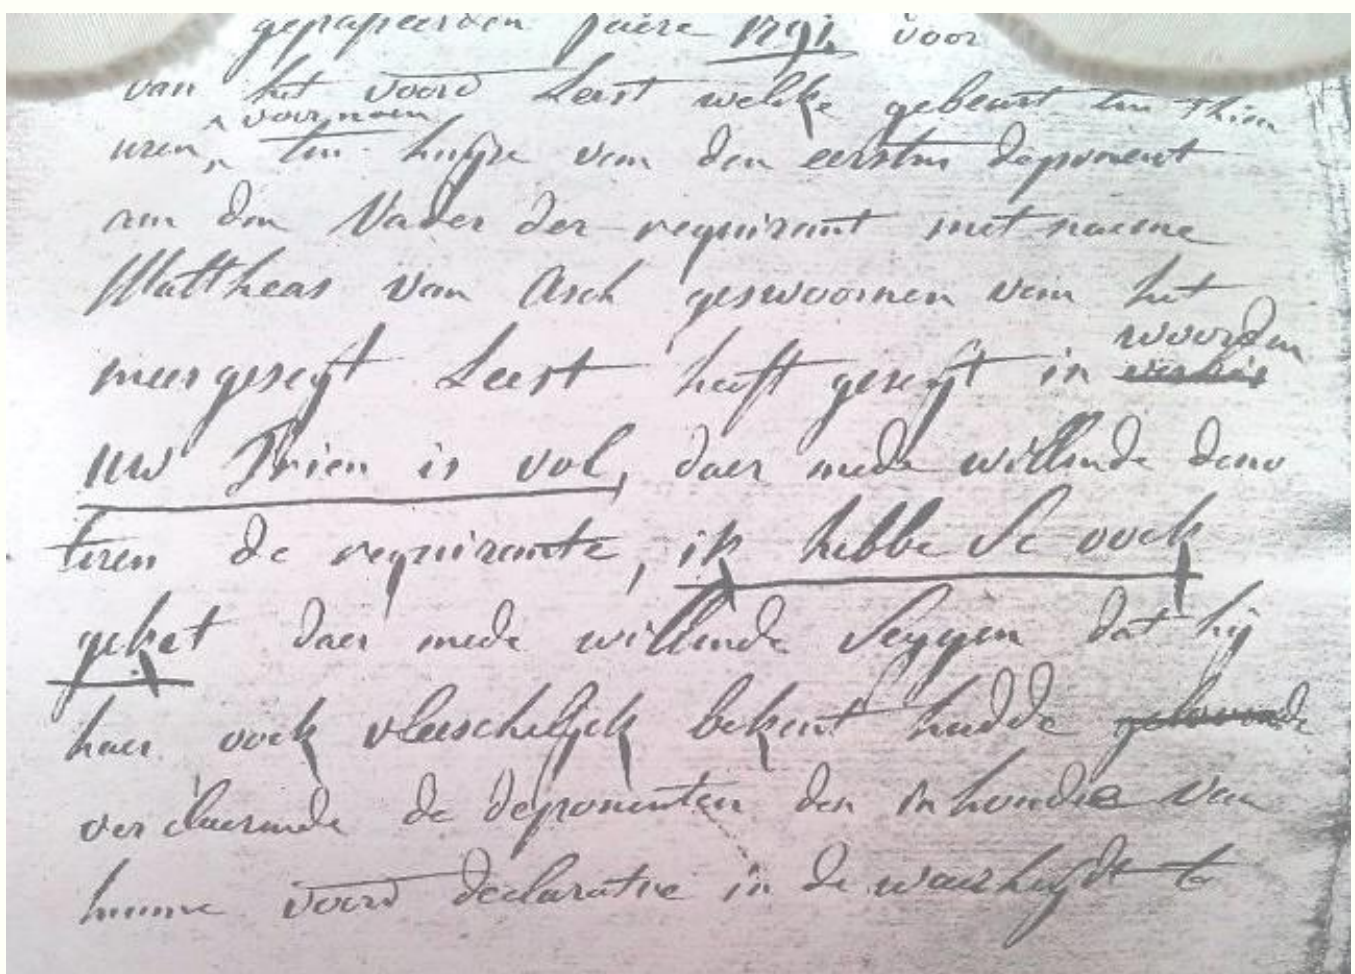 gepasseerden jaere 1791 voor
van het voord Leest welke gebeurt ten thien
voornoen
uren, ten huyse van den eersten deponent
aen den Vader der requirant met naeme
Mattheas van Asch geswoornen van het
woorden
meergeseyt Leest heeft geseyt in
uw Trien is vol, daer mede willende deno
teren de requirante, ik hebbe Se oock
gehat daer mede willende Seggen dat hij
haer oock vleeschelijck bekent hadde
verclaerende de deponenten den inhoude van
hunne voord declaratie in de waerheydt te